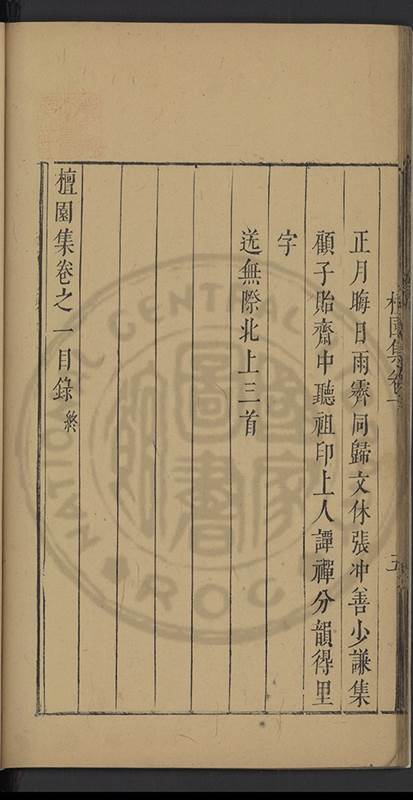 檀園集卷一
五
正月晦日雨霽同歸文休張冲善少謙集
顧子貽齋中聽祖印上人譚禪分韻得里
字
送無際北上三首
檀園集卷之一目錄終